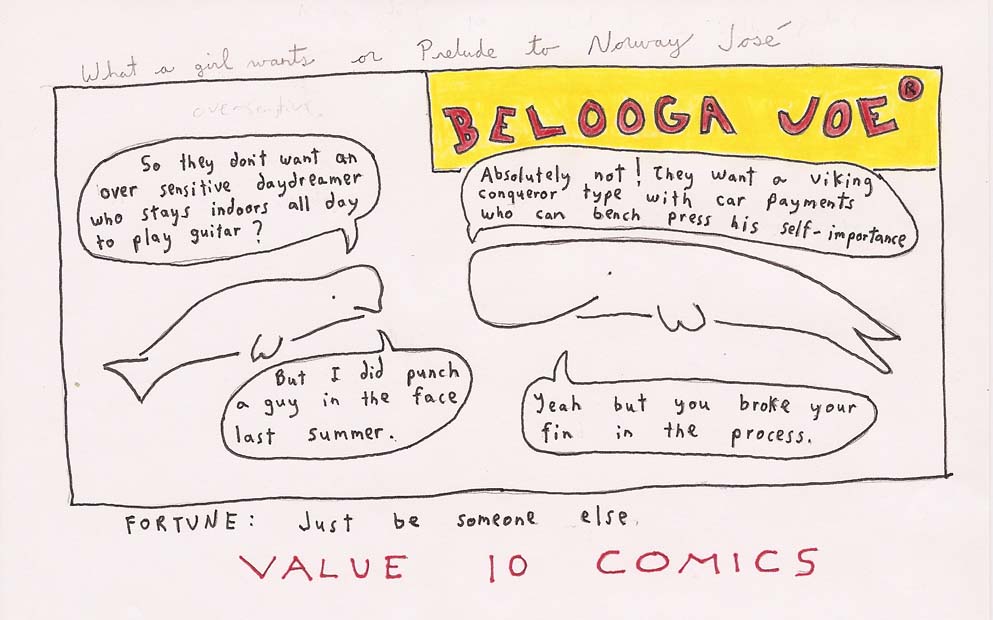 What a girl wants or Prelude to Norway José
oversensitive.
BELOOGA JOE®
So they don't want an
over sensitive daydreamer
who stays indoors all day
to play guitar?
Absolutely not! They want a viking
conqueror type with car payments
who can bench press his self-importance
But I did punch
a guy in the face
last summer.
Yeah but you broke your
fin in the process.
FORTUNE: Just be someone else.
VALUE 10 COMICS